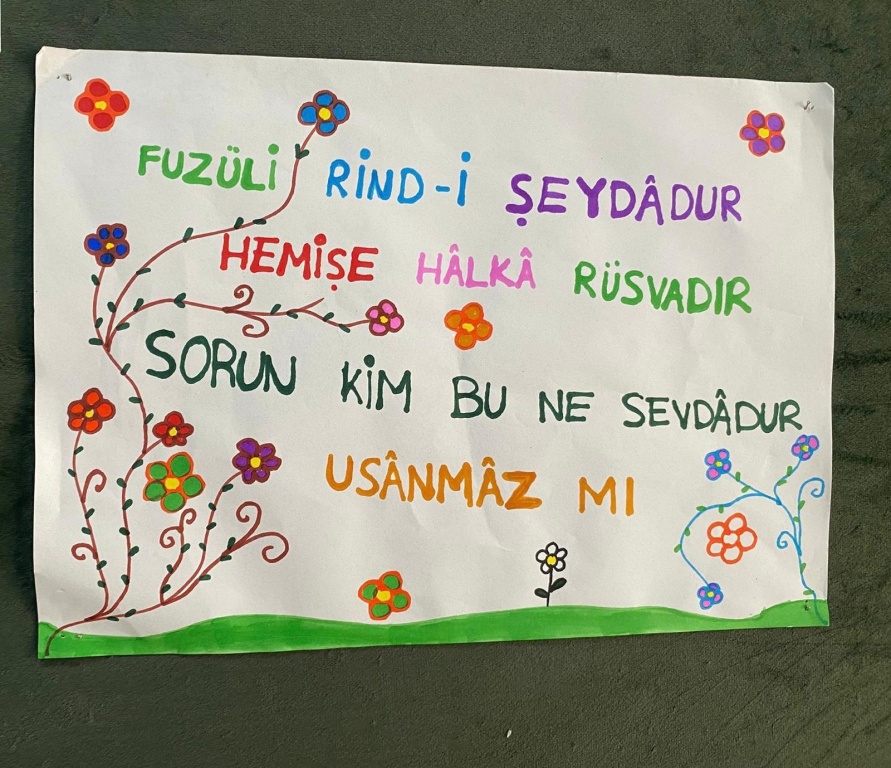 FUZÜLİ RİND-İ ŞEYDÂDUR
HEMİŞE HÂLKÂ RÜSVADIR
SORUN KİM BU NE SEVDÂDUR
USÂNMÂZ MI